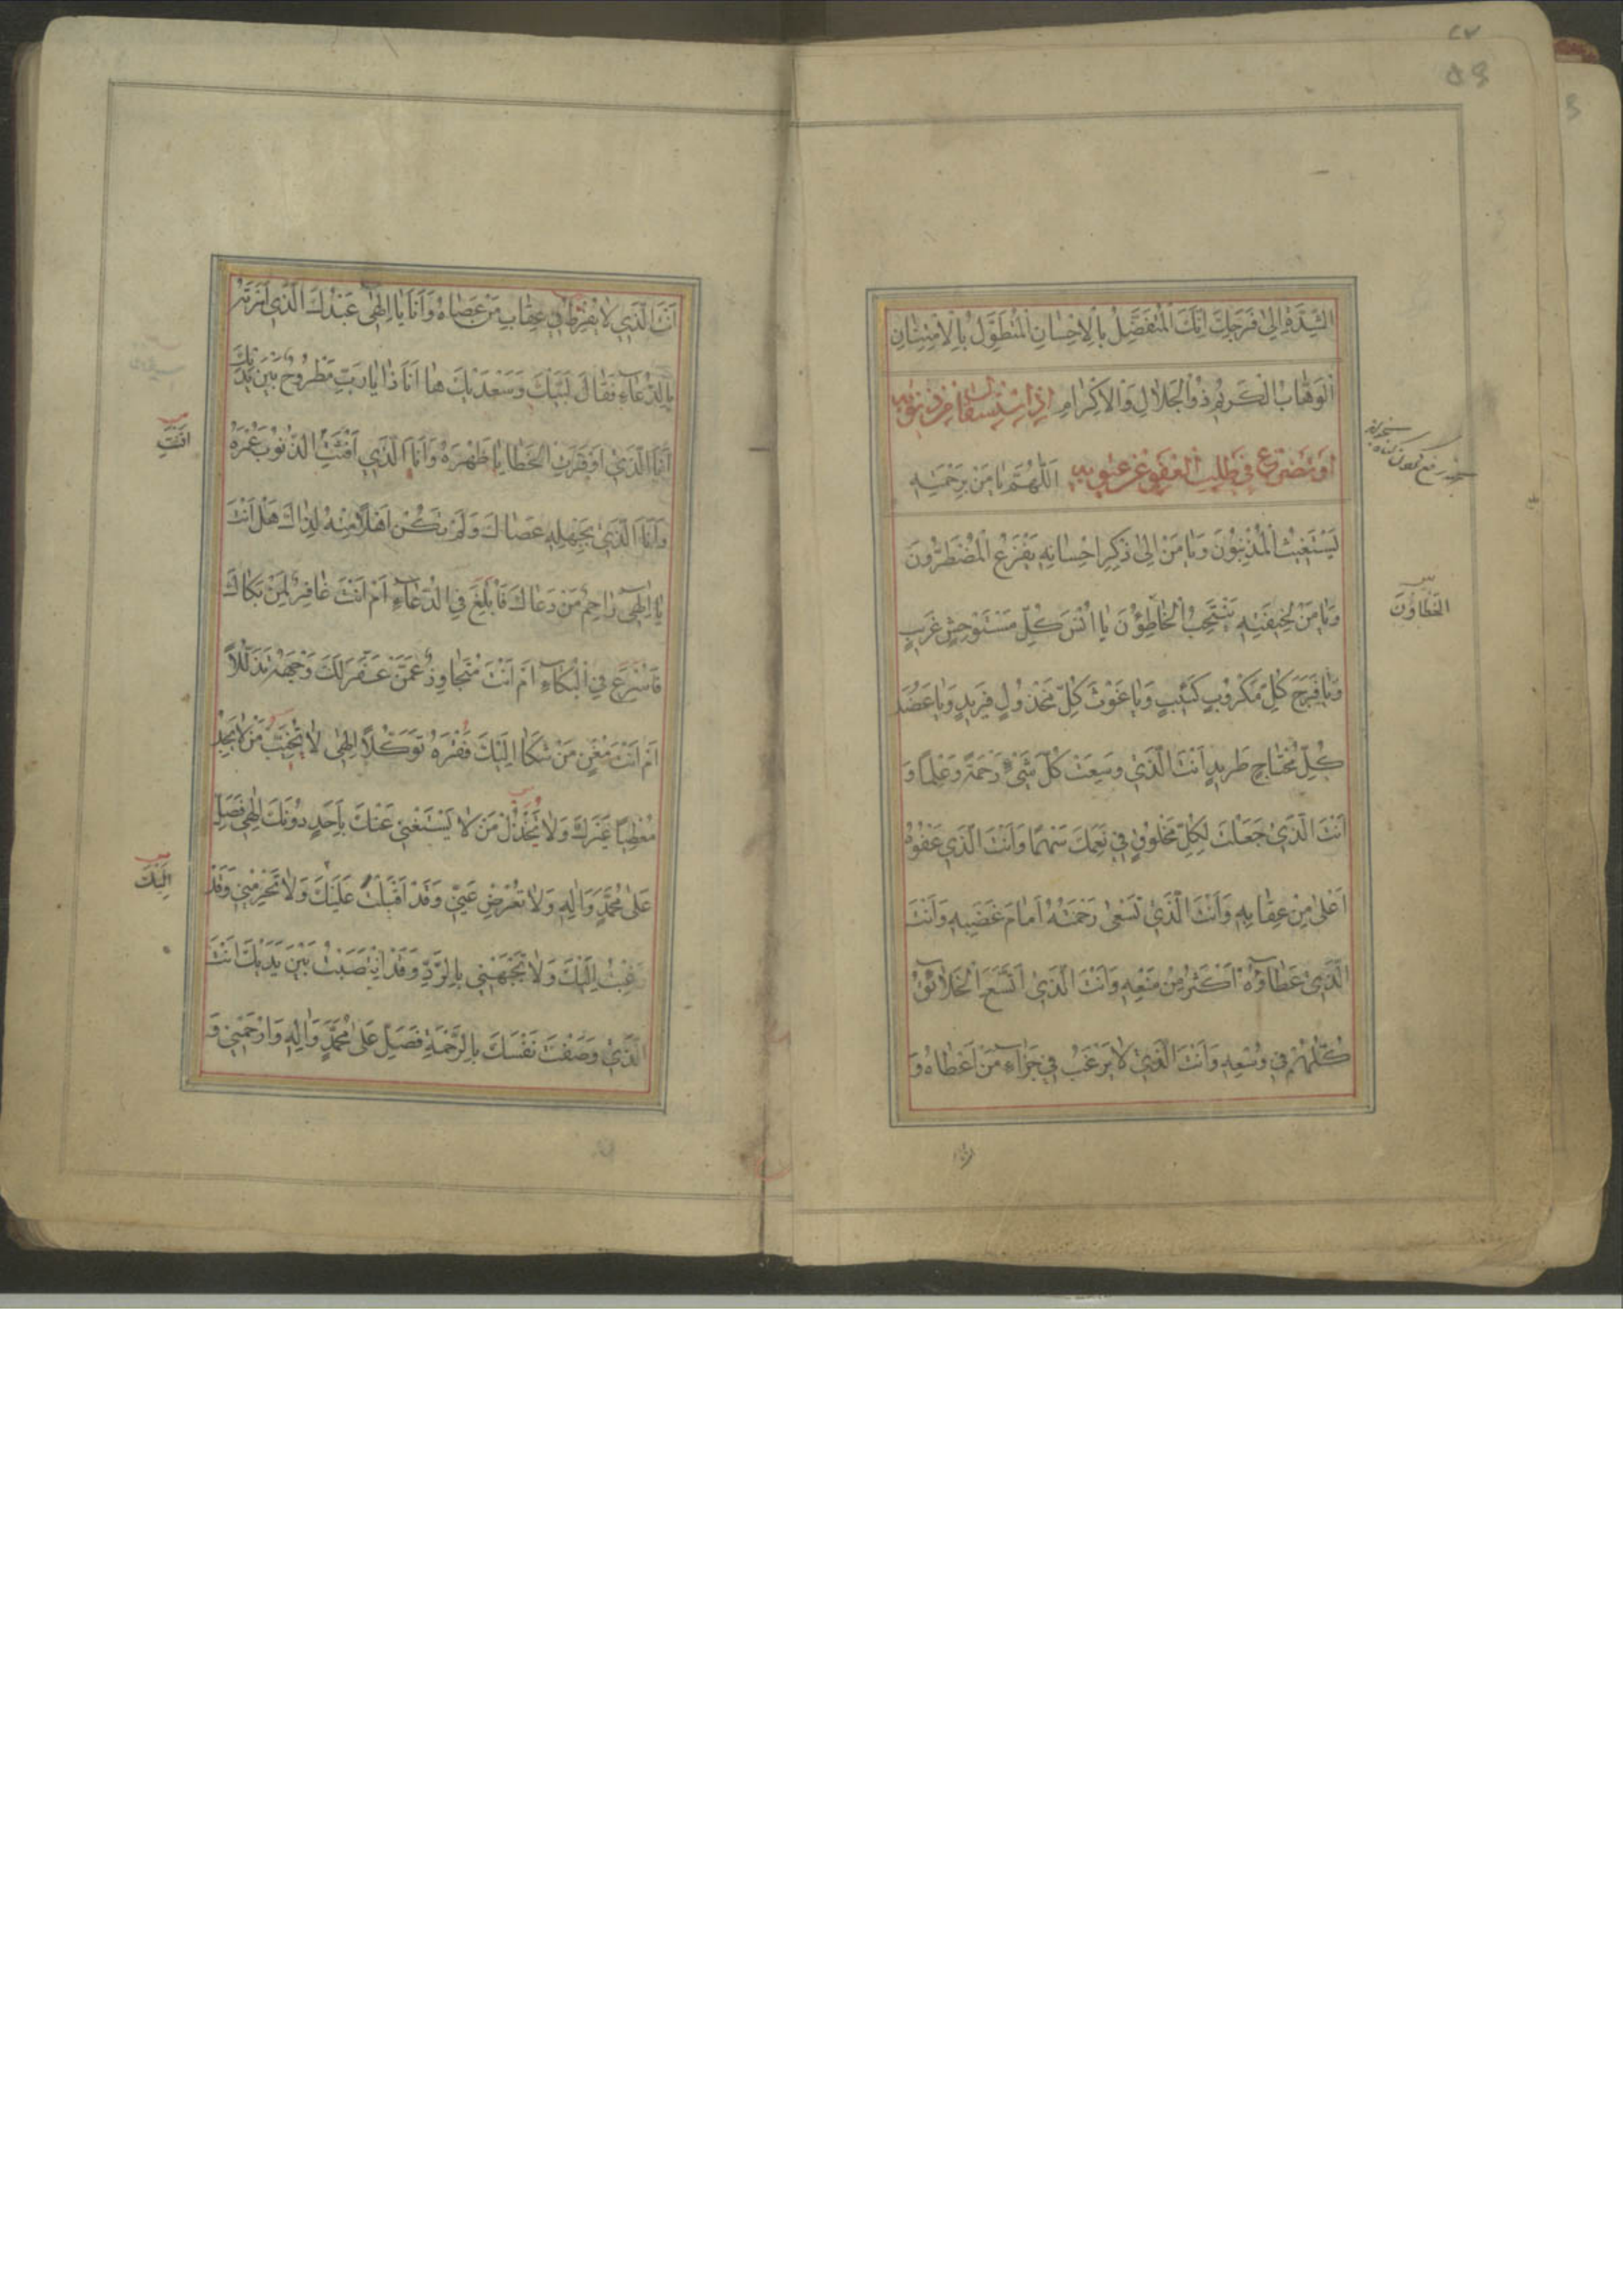 الشِّدَّةِ اِلىٰ فَرَجِكَ اِنَّكَ الْمُتَفَضِّلُ بِالْاِحْسانِ الْمُتَطَوِّلُ بِالْاِمْتِنانِ
الْوَهّابُ الْكَريمُ ذُو الْجَلالِ وَالْاِكْرامِ اِذَا اسْتَقالَ مِنْ ذُنُوبِهِ
اَوْ تَضَرَّعَ في طَلَبِ الْعَفْوِ عَنْ عُيُوبِهِ اَللّٰهُمَّ يا مَنْ بِرَحْمَتِهِ
يَسْتَغيثُ الْمُذْنِبُونَ وَيا مَنْ اِلىٰ ذِكْرِ اِحْسانِهِ يَفْزَعُ الْمُضْطَرُّونَ
وَيا مَنْ لِخيفَتِهِ يَنْتَحِبُ الْخاطِؤُنَ يا اُنْسَ كُلِّ مُسْتَوْحِشٍ غَريبٍ
الخَطّاؤُنَ
وَيا فَرَجَ كُلِّ مَكْرُوبٍ كَئيبٍ وَيا غَوْثَ كُلِّ مَخْذُولٍ فَريدٍ وَيا عَضُدَ
كُلِّ مُحْتاجٍ طَريدٍ اَنْتَ الَّذي وَسِعْتَ كُلَّ شَيْءٍ رَحْمَةً وَعِلْمًا وَ
اَنْتَ الَّذي جَعَلْتَ لِكُلِّ مَخْلُوقٍ في نِعَمِكَ سَهْمًا وَاَنْتَ الَّذي عَفْوُهُ
اَعْلىٰ مِنْ عِقابِهِ وَاَنْتَ الَّذي تَسْعىٰ رَحْمَتُهُ اَمامَ غَضَبِهِ وَاَنْتَ
الَّذي عَطاؤُهُ اَكْثَرُ مِنْ مَنْعِهِ وَاَنْتَ الَّذي اتَّسَعَ الْخَلائِقُ
كُلُّهُمْ في وُسْعِهِ وَاَنْتَ الَّذي لا يَرْغَبُ في جَزاءِ مَنْ اَعْطاهُ وَ
اَنْتَ الَّذي لا يُفْرِطُ في عِقابِ مَنْ عَصاهُ وَاَنَا يا اِلٰهي عَبْدُكَ الَّذي اَمَرْتَهُ
بِالدُّعاءِ فَقالَ لَبَّيْكَ وَسَعْدَيْكَ ها اَنَا ذا يا رَبِّ مَطْرُوحٌ بَيْنَ يَدَيْكَ
اَنَا الَّذي اَوْقَرَتِ الْخَطايا ظَهْرَهُ وَاَنَا الَّذي اَفْنَتِ الذُّنُوبُ عُمْرَهُ
اَفْنَتْ
وَاَنَا الَّذي بِجَهْلِهِ عَصاكَ وَلَمْ تَكُنْ اَهْلًا مِنْهُ لِذاكَ هَلْ اَنْتَ
يا اِلٰهي راحِمٌ مَنْ دَعاكَ فَاُبْلِغَ فِي الدُّعاءِ اَمْ اَنْتَ غافِرٌ لِمَنْ بَكاكَ
فَاُسْرِعَ فِي الْبُكاءِ اَمْ اَنْتَ مُتَجاوِزٌ عَمَّنْ عَفَّرَ لَكَ وَجْهَهُ تَذَلُّلًا
اَمْ اَنْتَ مُغْنٍ مَنْ شَكا اِلَيْكَ فَقْرَهُ تَوَكُّلًا اِلٰهي لا تُخَيِّبْ مَنْ لا يَجِدُ
مُعْطِيًا غَيْرَكَ وَلا تَخْذُلْ مَنْ لا يَسْتَغْني عَنْكَ بِاَحَدٍ دُونَكَ اِلٰهي فَصَلِّ
عَلىٰ مُحَمَّدٍ وَاٰلِهِ وَلا تُعْرِضْ عَنّي وَقَدْ اَقْبَلْتُ عَلَيْكَ وَلا تَحْرِمْني وَقَدْ
اِلَيْكَ
رَغِبْتُ اِلَيْكَ وَلا تَجْبَهْني بِالرَّدِّ وَقَدِ انْتَصَبْتُ بَيْنَ يَدَيْكَ اَنْتَ
الَّذي وَصَفْتَ نَفْسَكَ بِالرَّحْمَةِ فَصَلِّ عَلىٰ مُحَمَّدٍ وَاٰلِهِ وَارْحَمْني وَ